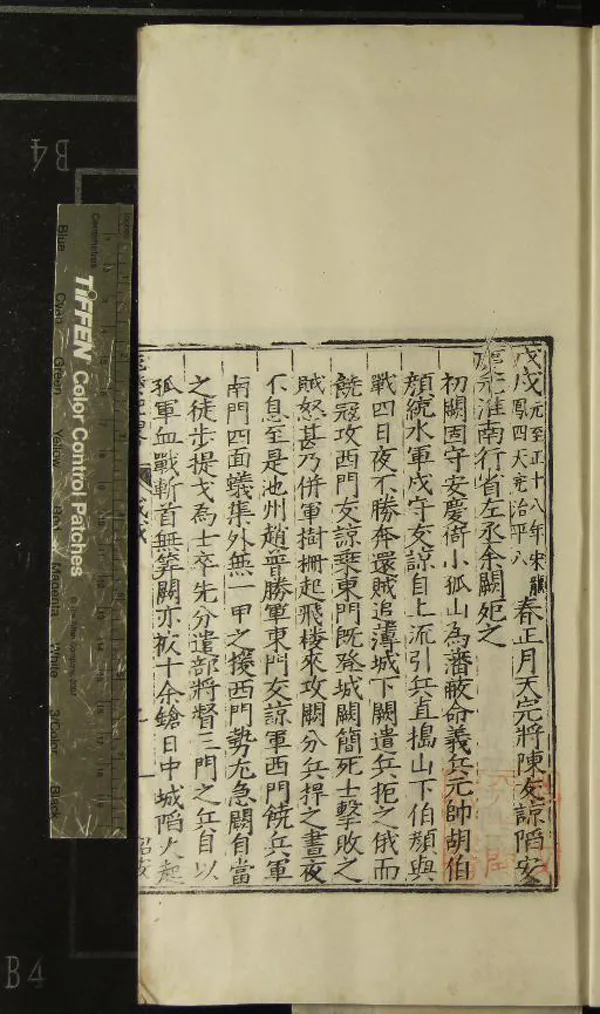 戊戌元至正十八年宋龍鳳四天完治平八春正月天完將陳友諒陷安
慶元淮南行省左丞余闕死之
初闕固守安慶倚小孤山為藩蔽命義兵元帥胡伯
顏統水軍戍守友諒自上流引兵直搗山下伯顏與
戰四日夜不勝奔還賊追薄城下闕遣兵扼之俄而
饒冦攻西門友諒乗東門既登城闕簡死士擊敗之
賊怒甚乃併軍樹柵起飛樓來攻闕分兵捍之晝夜
不息至是池州趙普勝軍東門友諒軍西門饒兵軍
南門四面蟻集外無一甲之援西門勢尤急闕自當
之徒步提戈為士卒先分遣部將督三門之兵自以
孤軍血戰斬首無筭闕亦被十余鎗日中城陷火起
B4
TIFFEN Color Control Patches
Centimetres
Blue
Cyan
Green
Yellow
Red
Magenta
White
3/Color
Black
B4